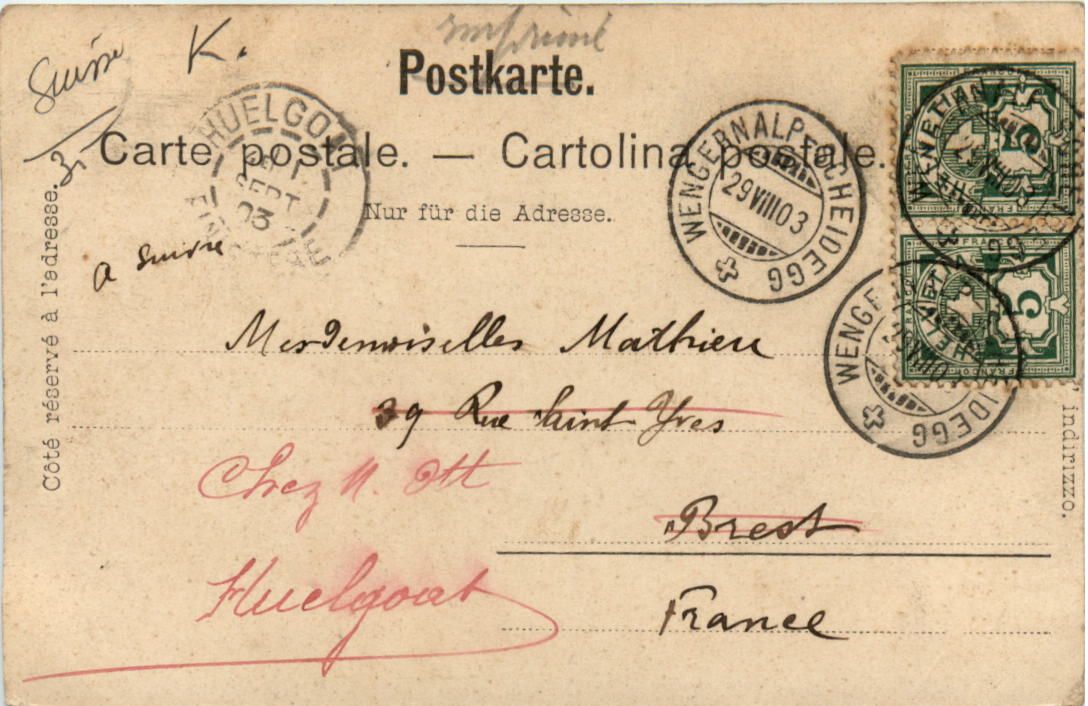 imprimé
Suisse
K.
3.
Postkarte.
Carte postale. — Cartolina postale.
Nur für die Adresse.
Côté réservé à l'adresse.
indirizzo.
HUELGOAT
SEPT
03
FINISTERE
WENGERNALP-SCHEIDEGG
29 VIII 03
WENGE
IDEGG
FRANCO
HELVETIA
5
5
a suivre
Mesdemoiselles Mathieu
39 Rue Saint Yves
Chez M. Ott
Brest
Huelgoat
France